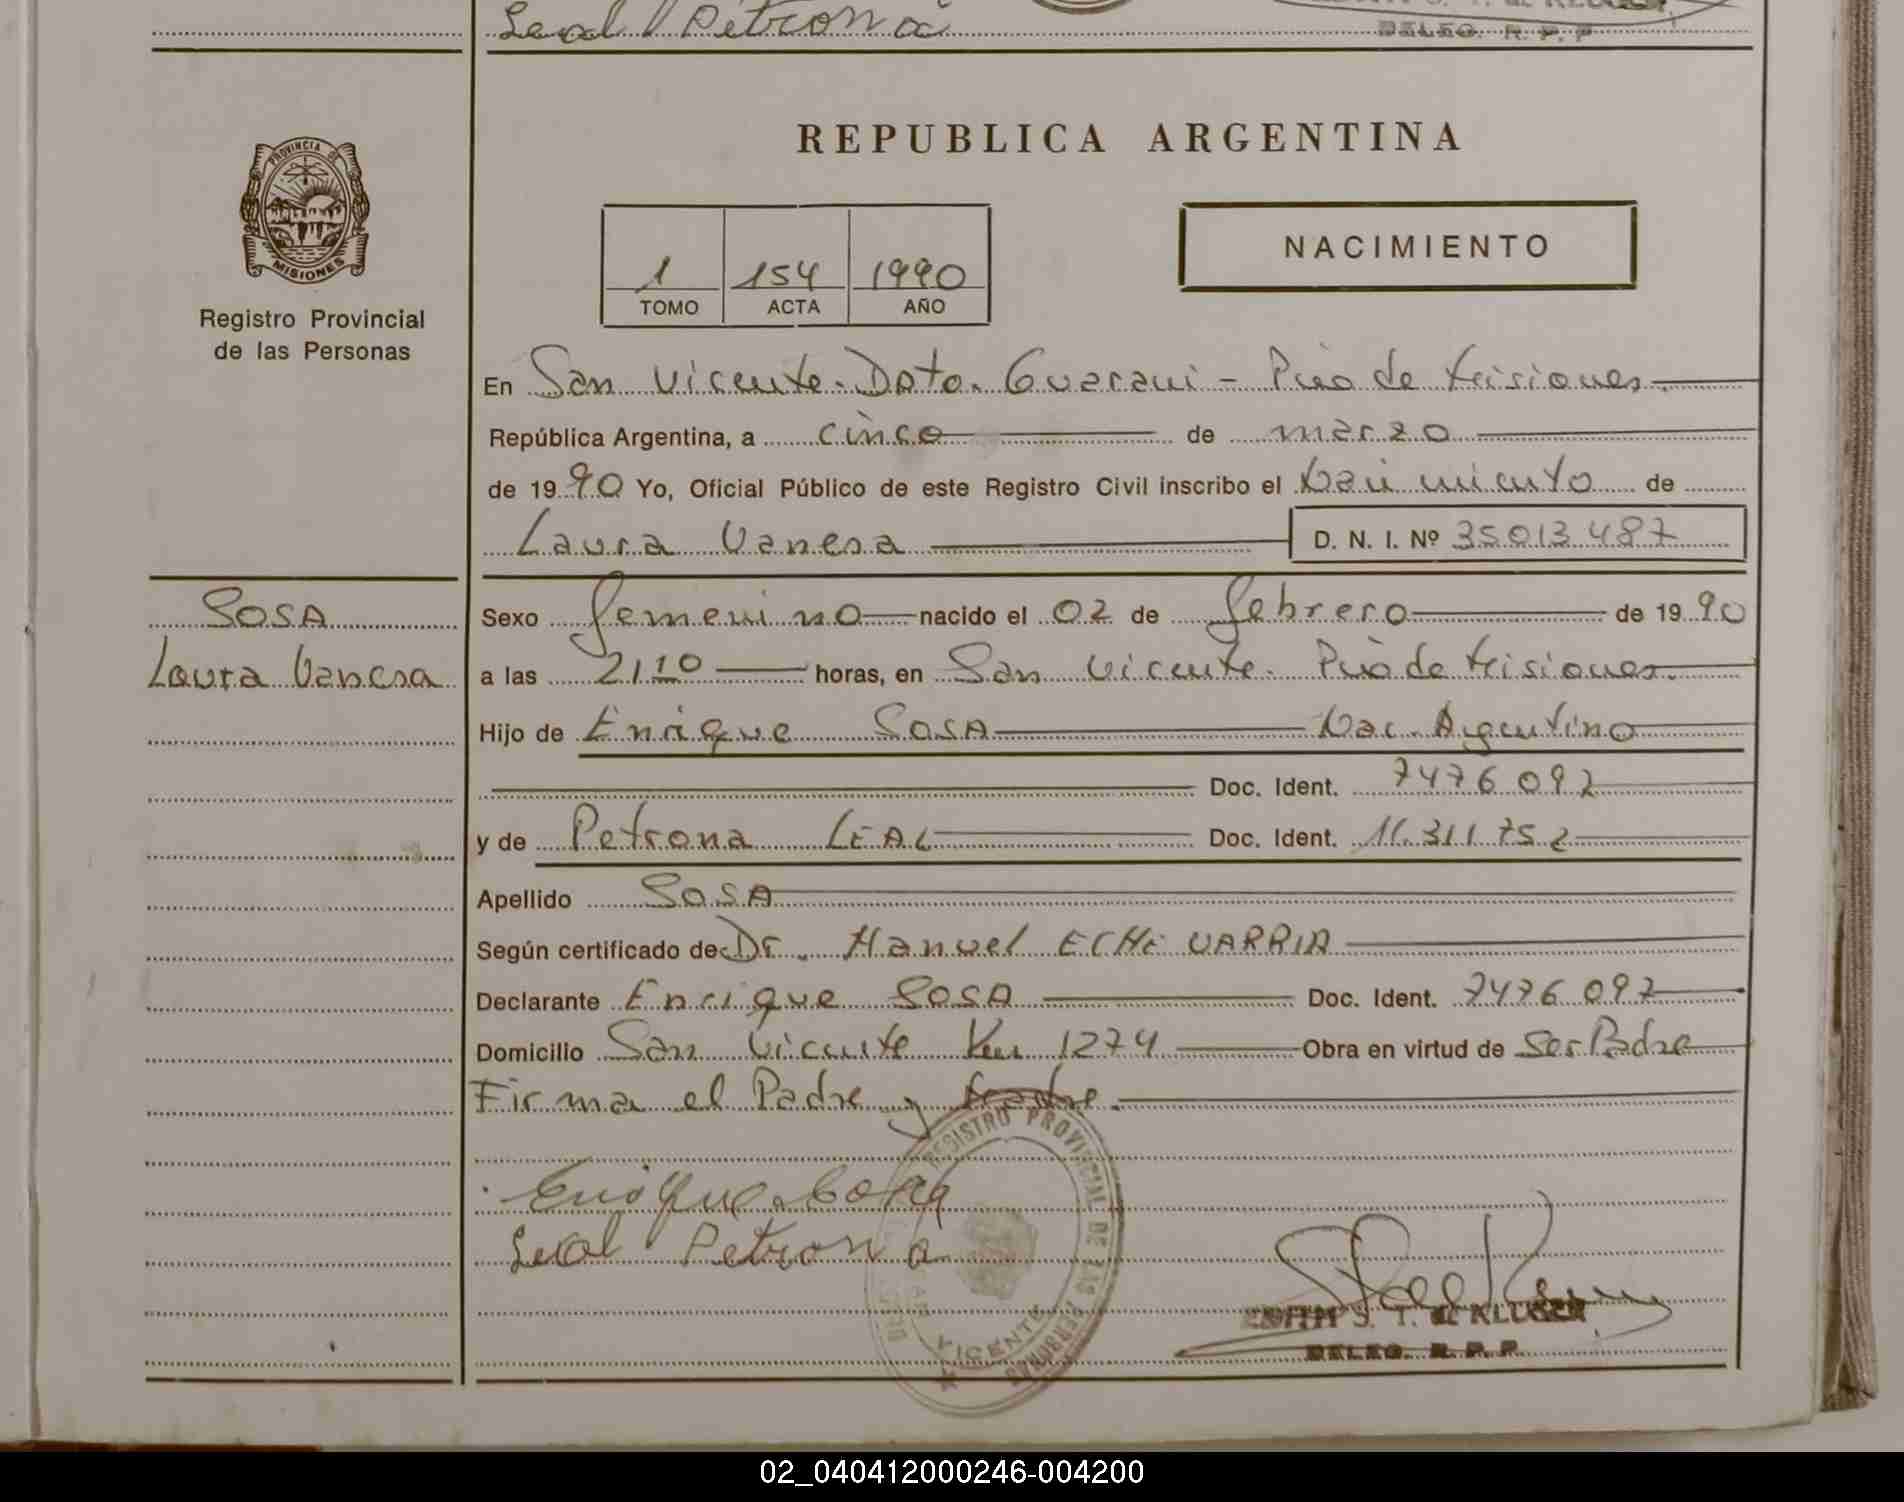 Leal Petrona
DELEG. R. P. P
REPUBLICA ARGENTINA
PROVINCIA DE
MISIONES
Registro Provincial
de las Personas
1 154 1990
TOMO ACTA AÑO
NACIMIENTO
En San Vicente. Dpto. Guarani - Pcia de Misiones
República Argentina, a cinco de marzo
de 1990 Yo, Oficial Público de este Registro Civil inscribo el Nacimiento de
Laura Vanesa D. N. I. Nº 35013487
SOSA
Laura Vanesa
Sexo femenino nacido el 02 de febrero de 1990
a las 21,10 horas, en San Vicente. Pcia de Misiones.
Hijo de Enrique SOSA Nac. Argentino
Doc. Ident. 7476092
y de Petrona LEAL Doc. Ident. 11.311.752
Apellido SOSA
Según certificado de Dr. Manuel ECHEVARRIA
Declarante Enrique SOSA Doc. Ident. 7476092
Domicilio San Vicente Km 1274 Obra en virtud de Ser Padre
Firma el Padre y Madre.
Enrique Sosa
Leal Petrona
REGISTRO PROVINCIAL DE LAS PERSONAS
VICENTE
EDITH S. T. de KLUGER
DELEG. R. P. P.
02_040412000246-004200